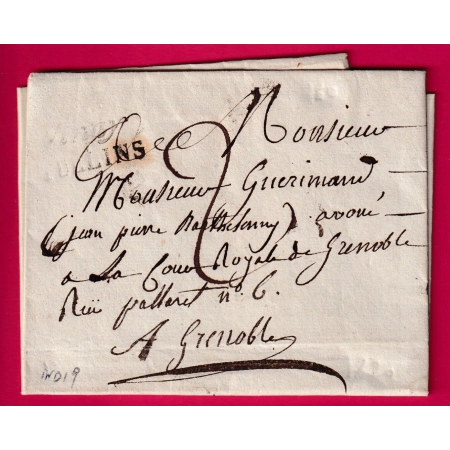 Monsieur
TULLINS
2
Monsieur Guerimand
(jean pierre Barthelemy) avoué
a La Cour Royale de Grenoble
Rüe pallaret n°. 6.
A Grenoble
IND19